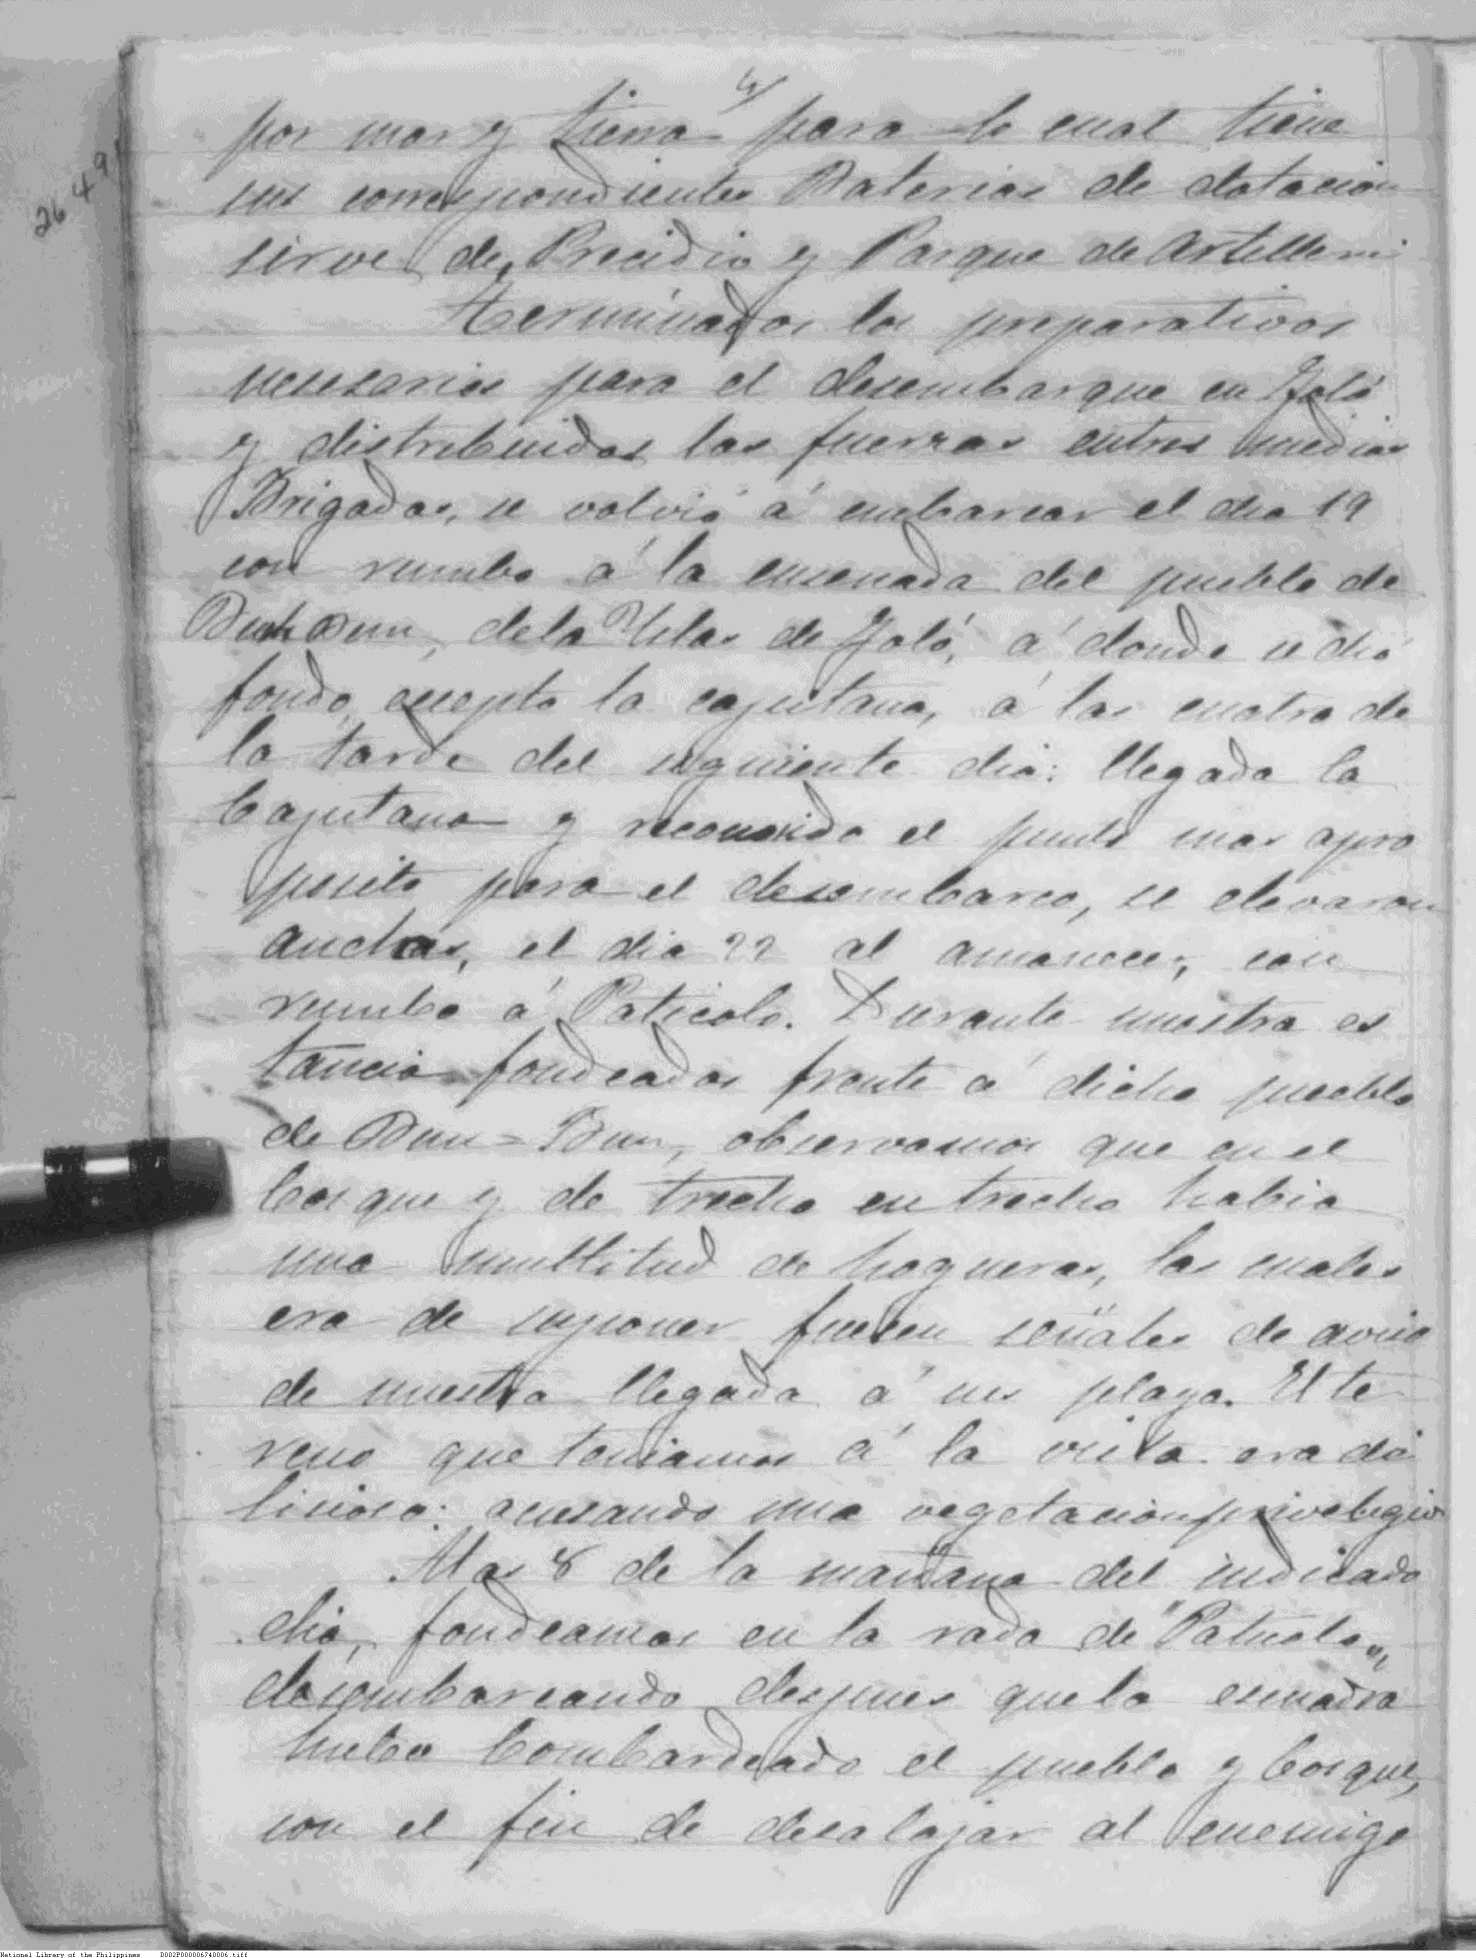 por mar y tierra para lo cual tiene
sus correspondientes Baterias de dotacion
sirve de Precidio y Parque de Artilleria
Terminados los preparativos
nesesarios para el desembarque en Joló
y distribuidas las fuerzas entres medias
Brigadas, se volvió á embarcar el dia 19
con rumbo á la ensenada del pueblo de
Bun Bun, dela Yslas de Joló, á donde se dió
fondo, ecepto la capitana, á las cuatro de
la tarde del siguiente dia: llegada la
Capitana y reconosido el punto mas apro
posito para el desembarco, se elevaron
anclas, el dia 22 al amanecer, con
rumbo á Paticolo. Durante nuestra es
tancia fondeados frente á dicho pueblo
de Bun=Bun, observamos que en el
bosque y de trecho en trecho habia
una multitud de hogueras, las cuales
era de suponer fuesen señales de aviso
de nuestra llegada á sus playa. El te
reno que teniamos á la vista era de
lisioso: acusando una vegetacion privelegia
Alas 8 de la mañana del indicado
dia, fondeamos en la rada de "Paticolo",
desembarcando despues quela escuadra
hubo bombardeado el pueblo y bosque,
con el fin de desalojar al enemigo
26491
National Library of the Philippines D002P000006740006.tiff